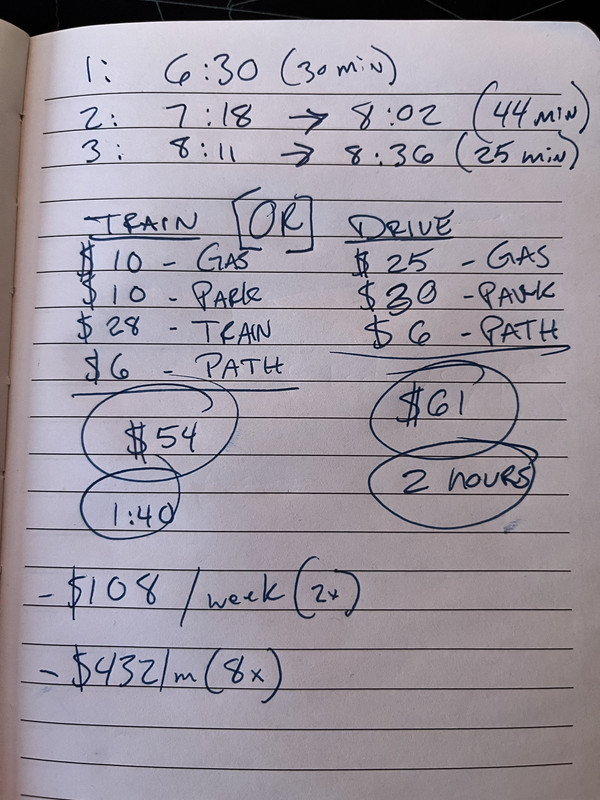 1: 6:30 (30 min)
2: 7:18 → 8:02 (44 min)
3: 8:11 → 8:36 (25 min)
TRAIN [OR] DRIVE
$10 - GAS $25 - GAS
$10 - PARK $30 - PARK
$28 - TRAIN $6 - PATH
$6 - PATH
$54 $61
1:40 2 HOURS
- $108 / week (2x)
- $432/m (8x)